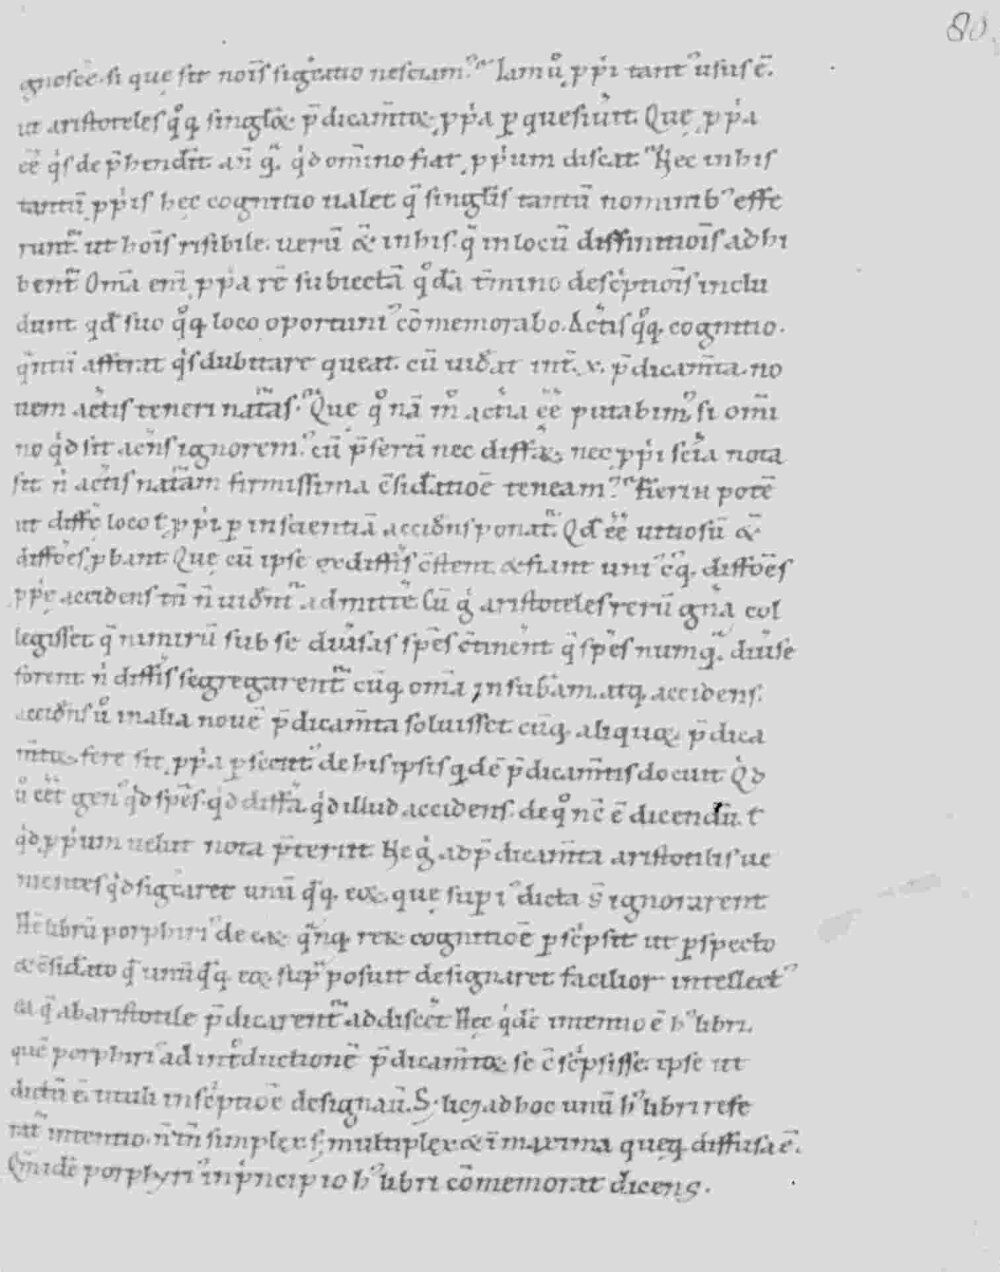 80.
gnoscē. si quę sit nōis sig̅catio nesciam᷒. Iam ů ꝓprı̇ tant᷒ usus ē.
ut aristoteles q̊q; singlōꝝ p̄dicam̄toꝝ ꝓprı̇a ꝑquesiuit. Quę ꝓprı̇a
eē q̇s dep̄hendit an̄ q̄ q̇d om̄ino fiat ꝓprı̇um discat. Hęc in his
tantū ꝓprı̇is hęc cognitio ualet q̄ singlis tantū nominib᷒ effe
runt᷒. ut hōis risibile. uerū & in his. q̄ in locū diffinitiōis adhi
bent᷒. Om̄a eni ꝓprı̇a rē subiectā q̊dā t̄mino descptiōis inclu
dunt. qd̄ suo q̊q; loco oportuni᷒ cōmemorabo. Actis q̊q; cognitio.
q̄ntū afferat q̇s dubitare queat. cū uid̄at int̄ .x. p̄dicam̄ta. no
uem actis teneri nat᷒as. Quę q̊nā m̊ actia eē putabim᷒. si om̄i
no q̇d sit acn̄s ignorem᷒. cū p̄sertı̄ nec diffaꝝ. nec ꝓprı̇ scı̄a nota
sit n̄ actis nat᷒am firmissima c̄sid̄atiōe teneam᷒. Fieri n̄ potē
ut diffę loco ł ꝓprı̇ ꝑ inscientiā accid̄ns ponat᷒. Qd̄ eē uitiosū &
diffōes ꝓbant. Quę cū ipsę ex diffīs c̄stent. & fiant uni᷒ c᷒q; diffōes
ꝓprı̇ę accidens tn̄ n̄ uid̄nt᷒ admittē. Cū ḡ aristoteles rerū gn̄a col
legisset q̄ nimirū sub se diu̇sas spēs c̄tinent q̄ spēs numq̄ diu̇se
forent. n̄ diffīs segregarent᷒. cūq; om̄a in subām. atq; accidens.
accid̄ns ů in alia nouē p̄dicam̄ta soluisset. cūq; aliquoꝝ p̄dica
m̄toꝝ fere sit ꝓprı̇a ꝑsecut᷒. de his ipsis q̇dē p̄dicam̄tis docuit. Q̇d
ů eēt gen᷒ q̇d spēs. q̇d diffā. q̇d illud accidens. de q̊ nc̄ ē dicendū. ł
q̇d ꝓprı̇um uelut nota p̄teriit. Ne ḡ ad p̄dicam̄ta aristotilis ue
nientes q̇d significaret unū q̇q; eoꝝ. quę supi᷒ dicta s̄ ignorarent
Hc̄ librū porphiri᷒ de eaꝝ q̄nq; reꝝ cognitiōe ꝑscpsit ut ꝑspecto
& c̄sid̄ato q̇ unū q̇q; eoꝝ sup᷒ posuit designaret facilior intellect᷒
ea q̄ ab aristotile p̄dicarent᷒ addiscet. Hęc q̇dē intentio ē h᷒ libri.
quē porphiri᷒ ad int̊ductionē p̄dicam̄toꝝ se c̄scpsisse. ipse ut
dictū ē. tituli inscptiōe designau̇. S; licet ad hoc unū h᷒ libri refe
rat᷒ intentio. n̄ tn̄ simplex s; multiplex & ı̄ maxima queq; diffusa ē.
Q᷒m idē porphyri᷒ in principio h᷒ libri cōmemorat dicens.